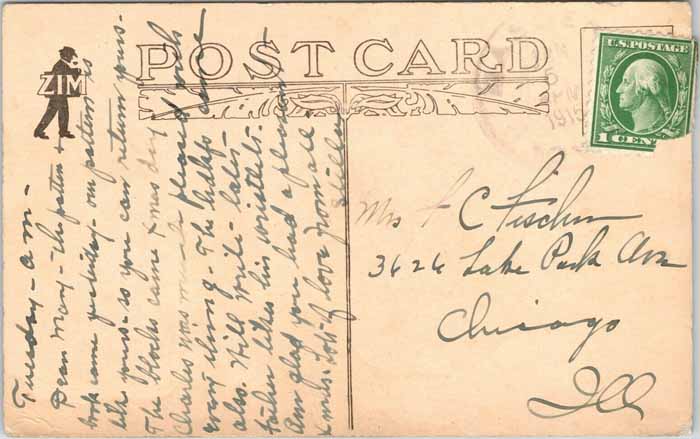 ZIM
POST CARD
U.S. POSTAGE
1 CENT
PM
1915
Tuesday - a.m -
Dear Mary - The pattern &
book came yesterday - our pattern is
like yours - so you can return yours -
The blocks came Xmas day
Charles was much pleased with
every thing - The
also. Will write later -
father likes his wristlets -
Am glad you had a pleasant
Xmas. Lots of love from all
Mrs C Fischer
3626 Lake Park Ave
Chicago
Ill